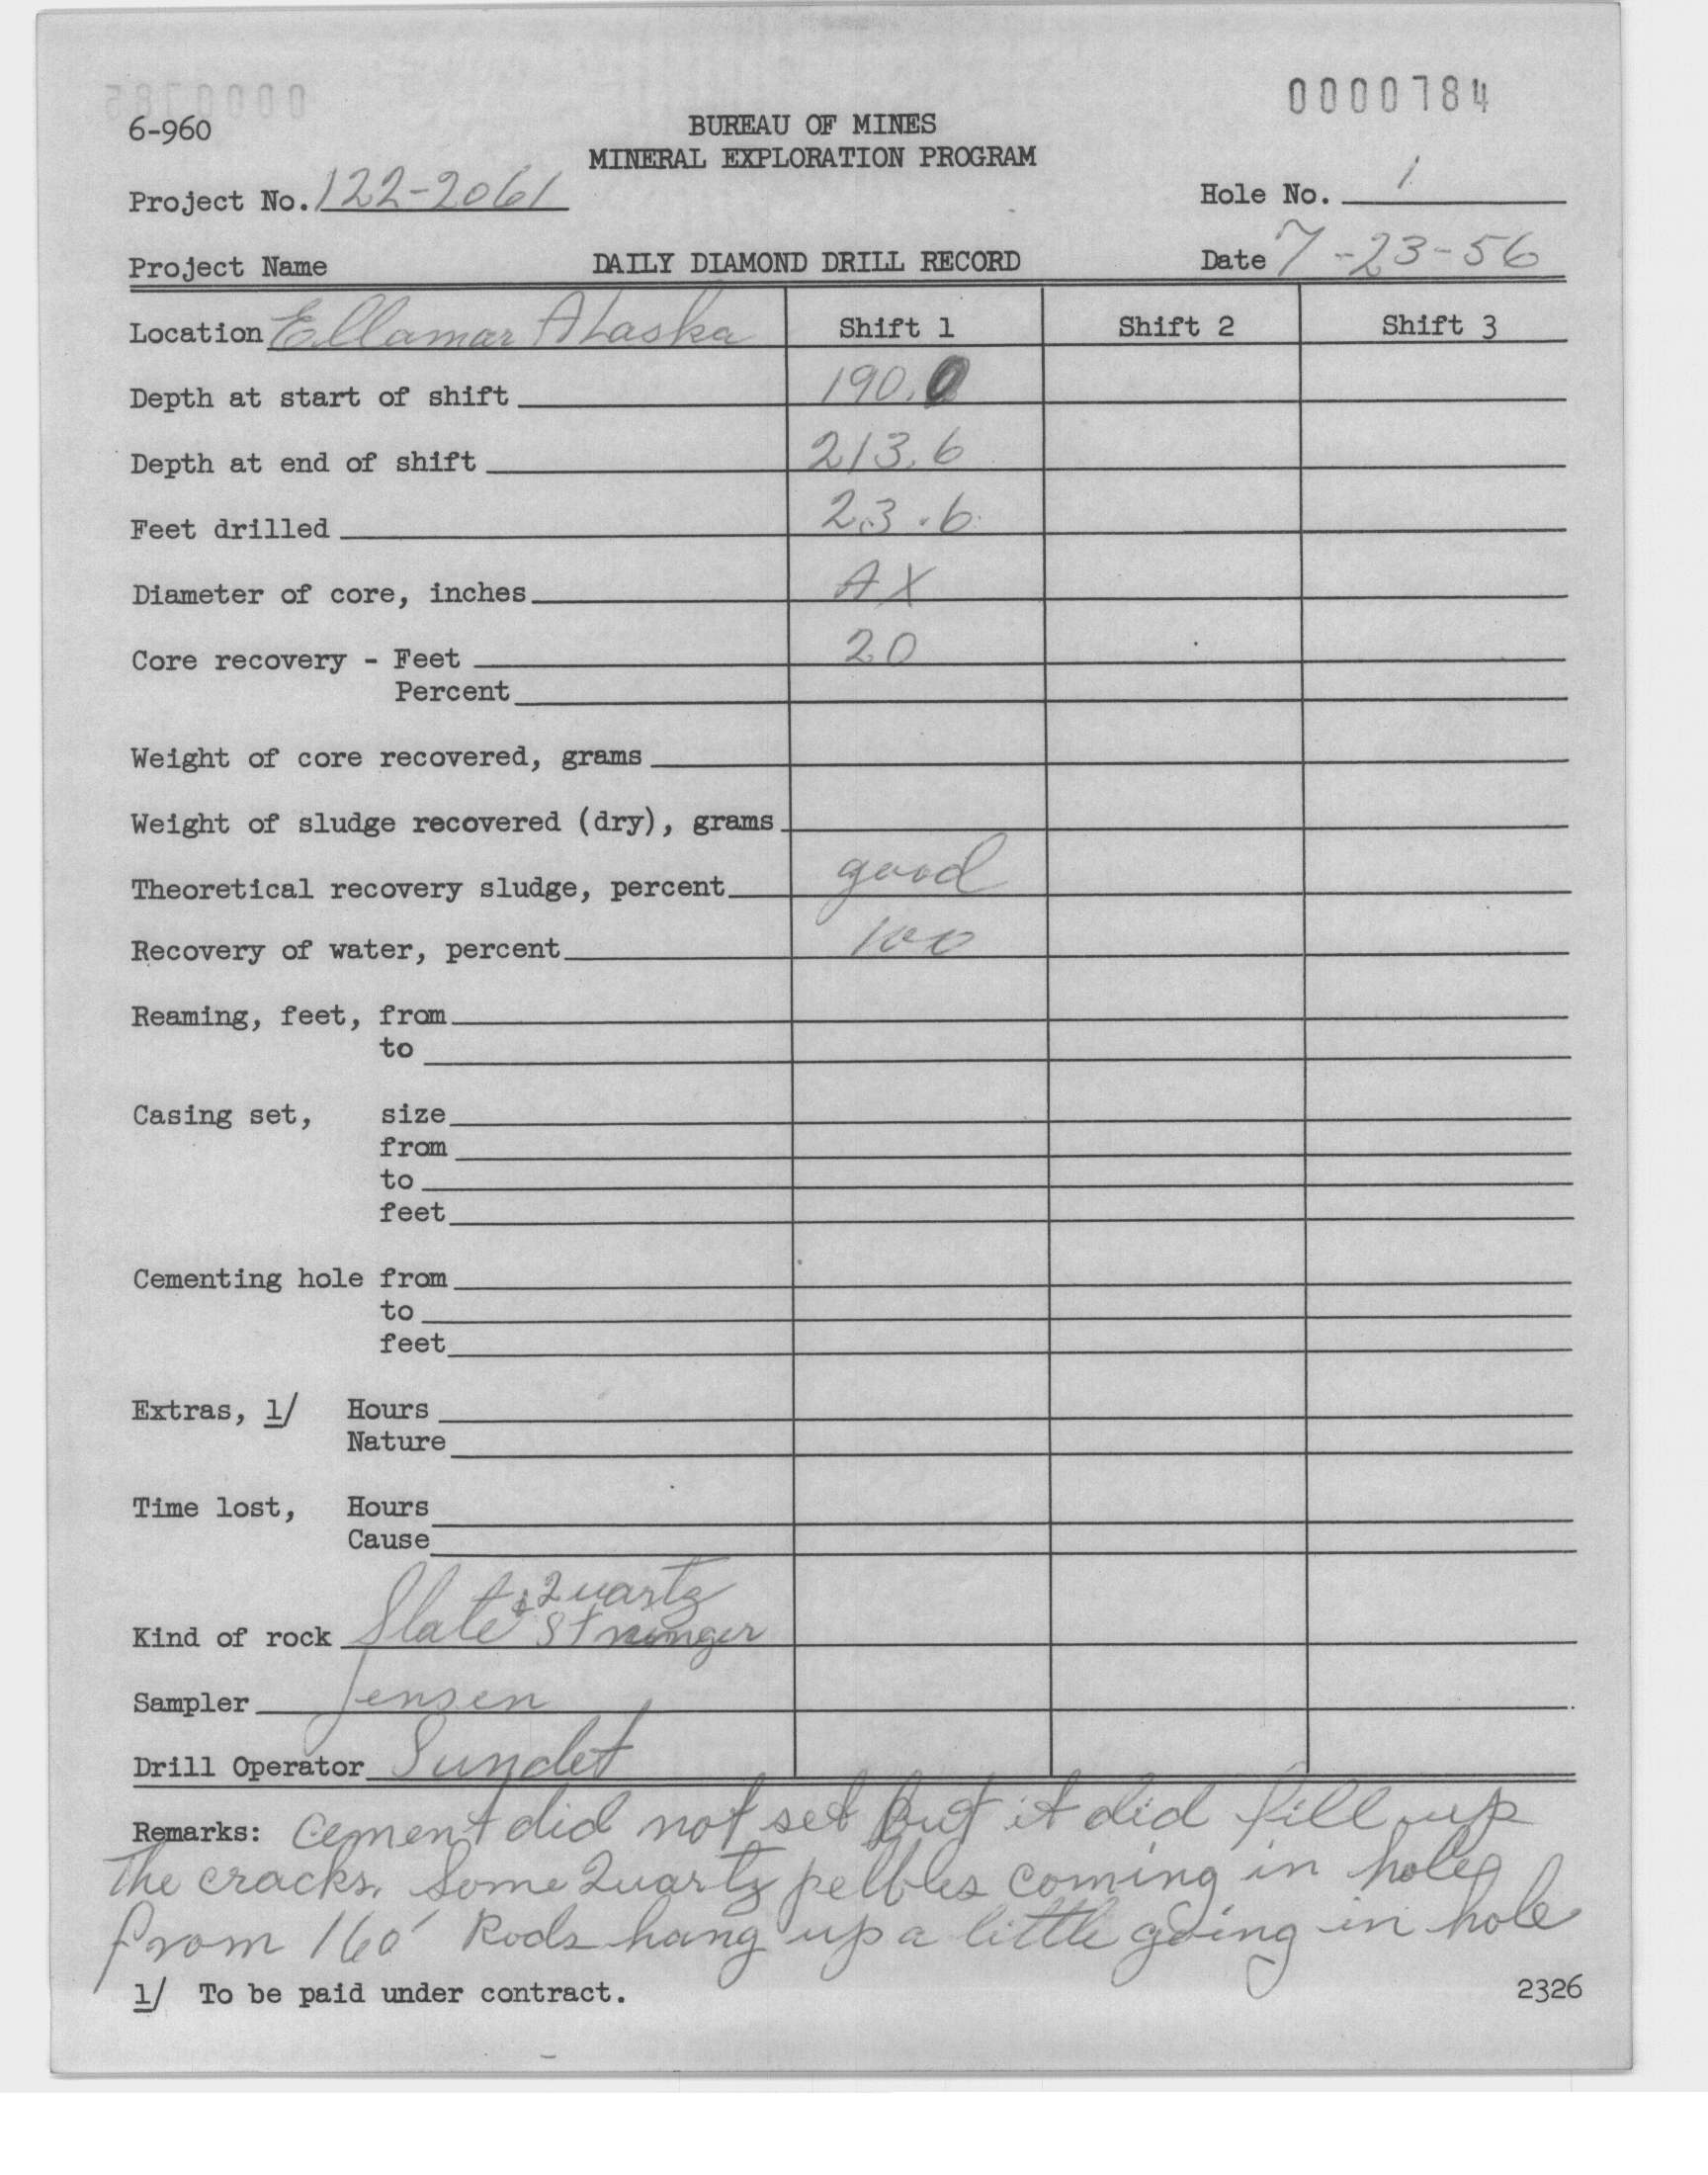 0000784
6-960
BUREAU OF MINES
MINERAL EXPLORATION PROGRAM
Project No. 122-2061
Hole No. 1
Project Name
DAILY DIAMOND DRILL RECORD
Date 7-23-56
Location Ellamar ALaska Shift 1 Shift 2 Shift 3
Depth at start of shift 190.0
Depth at end of shift 213.6
Feet drilled 23.6
Diameter of core, inches AX
Core recovery - Feet 20
Percent
Weight of core recovered, grams
Weight of sludge recovered (dry), grams
Theoretical recovery sludge, percent good
Recovery of water, percent 100
Reaming, feet, from
to
Casing set, size
from
to
feet
Cementing hole from
to
feet
Extras, 1/ Hours
Nature
Time lost, Hours
Cause
Kind of rock Slate & Quartz Stringer
Sampler Jensen
Drill Operator Sundet
Remarks: Cement did not set but it did fill up
the cracks. Some Quartz pebbles coming in hole
from 160' Rods hang up a little going in hole
1/ To be paid under contract.
2326